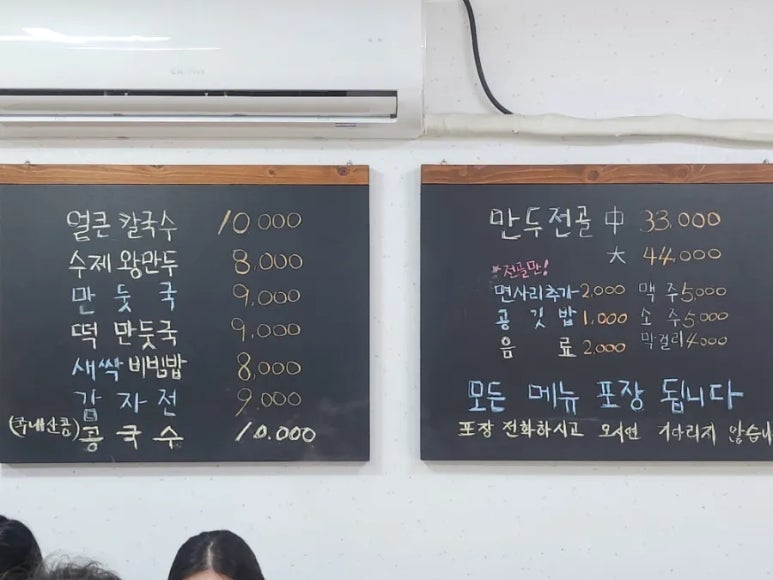 얼큰 칼국수 10.000
수제 왕만두 8.000
만 둣 국 9,000
떡 만둣국 9,000
새싹 비빔밥 8,000
감 자 전 9.000
(국내산콩) 콩 국 수 10.000
만두전골 中 33.000
大 44.000
*전골만!
면사리추가 2,000 맥 주 5,000
공 깃 밥 1,000 소 주 5,000
음 료 2,000 막걸리 4000
모든 메뉴 포장 됩니다
포장 전화하시고 오시면 기다리지 않습니